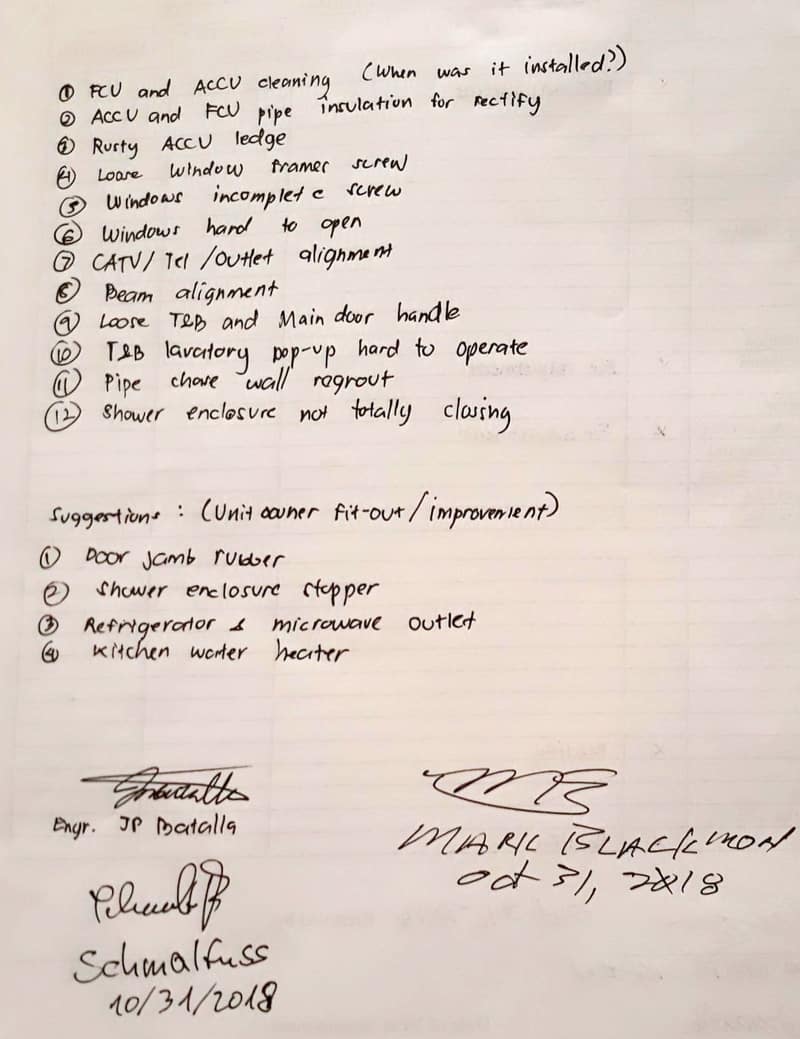 ① FCU and ACCU cleaning (When was it installed?)
② ACCU and FCU pipe insulation for rectify
③ Rusty ACCU ledge
④ Loose window frames screw
⑤ Windows incomplete screw
⑥ Windows hard to open
⑦ CATV/ Tel /Outlet alignment
⑧ Beam alignment
⑨ Loose T&B and Main door handle
⑩ T&B lavatory pop-up hard to operate
⑪ Pipe chase wall regrout
⑫ Shower enclosure not totally closing
Suggestions : (Unit owner fit-out/improvement)
① Door jamb rubber
② Shower enclosure stopper
③ Refrigerator & microwave outlet
④ Kitchen water heater
Engr. JP Batalla
MARK BLACKMON
Oct 31, 2018
Schmalfuss
10/31/2018